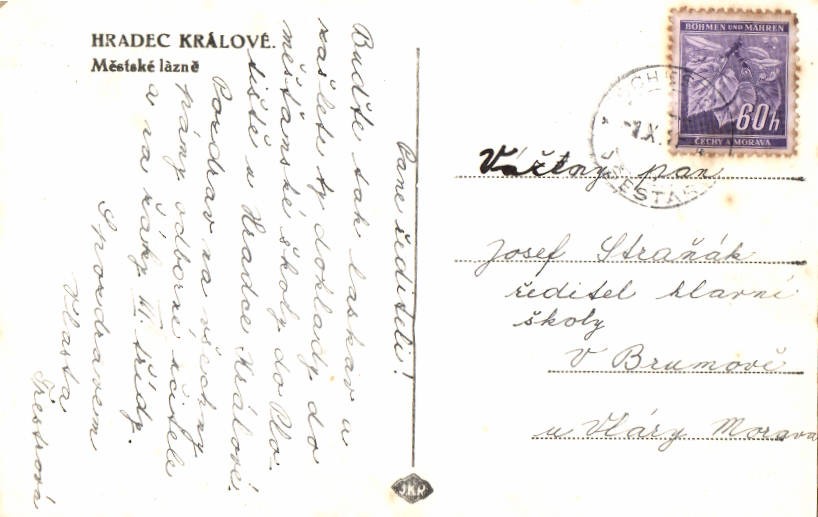 HRADEC KRÁLOVÉ.
Městské lázně
Pane řediteli!
Buďte tak laskav a
zašlete ty doklady do
měšťanské školy do Plo-
tiště u Hradce Králové.
Pozdrav na všechny
pány odborné učitele
a na žáky III. třídy.
S pozdravem
Vlasta
BÖHMEN UND MÄHREN
60h
ČECHY A MORAVA
-1.X.
Vážený pan
Josef Straňák
ředitel hlavní
školy
V Brumově
u Vláry Morava
JKR